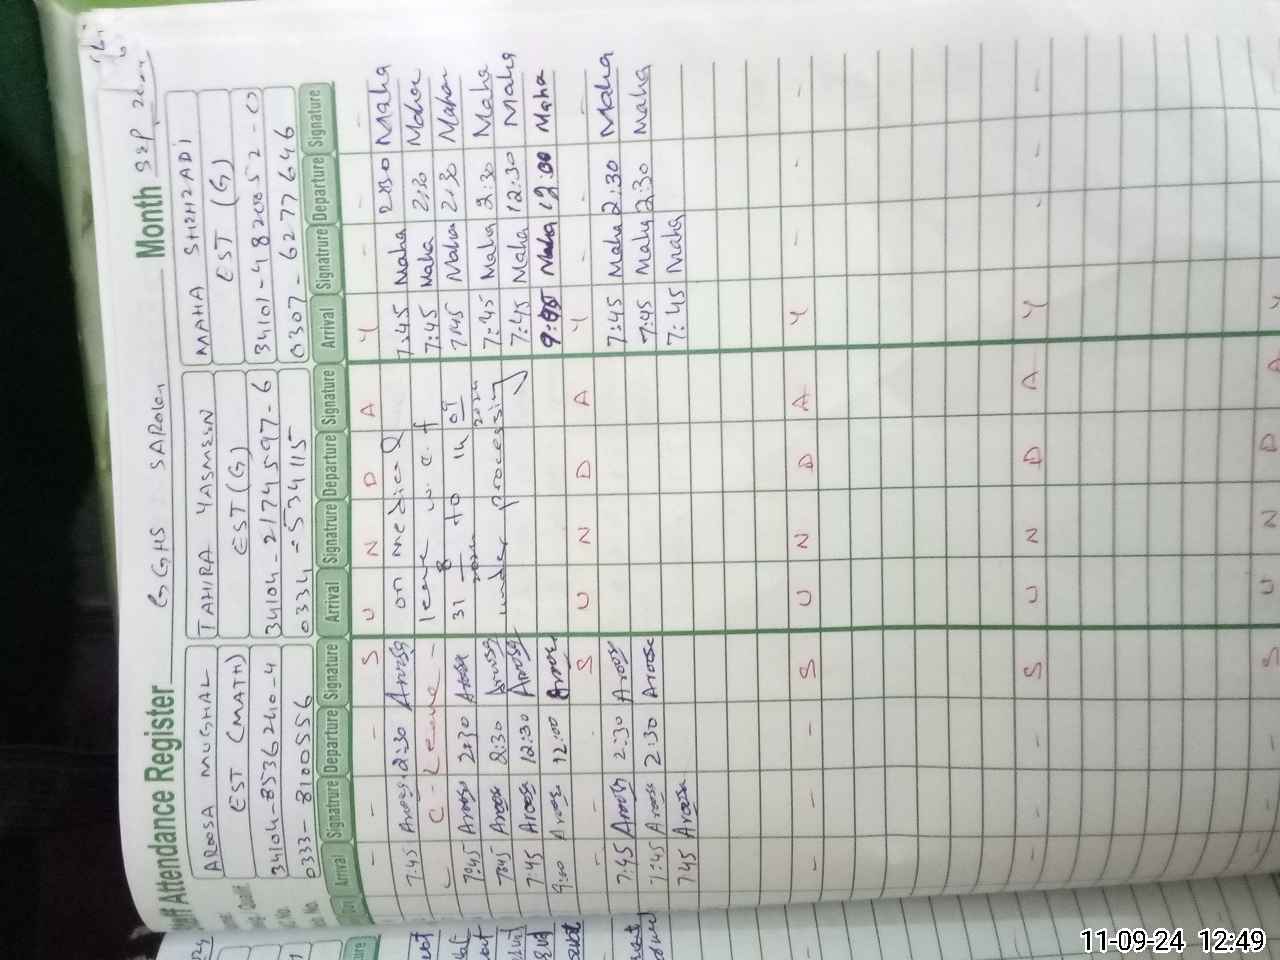 Staff Attendance Register GGHS SARolei Month SEP
AROOSA MUGHAL TAHIRA YASMEEN MAHA SHEHZADI
EST (MATH) EST (G) EST (G)
34104-8536240-4 34104-2174597-6 34101-4820052-0
0333-8100556 0334-5534115 0307-6277646
Arrival Signatrure Departure Signature Arrival Signatrure Departure Signature Arrival Signatrure Departure Signature
- - - S U N D A Y - - -
7:45 Aroosa 2:30 Aroosa on medical 7:45 Maha 2:30 Maha
C - Leave - leave w.e.f 7:45 Maha 2:30 Maha
7:45 Aroosa 2:30 Aroosa 31 8 2024 to 14 09 2024 7:45 Maha 2:30 Maha
7:45 Aroosa 2:30 Aroosa under processing 7:45 Maha 2:30 Maha
7:45 Aroosa 12:30 Aroosa 7:45 Maha 12:30 Maha
9:00 Aroosa 12:00 Aroosa Maha 12:00 Maha
- - - S U N D A Y - - -
7:45 Aroosa 2:30 Aroosa 7:45 Maha 2:30 Maha
7:45 Aroosa 2:30 Aroosa 7:45 Maha 2:30 Maha
7:45 Aroosa 7:45 Maha
- - - S U N D A Y - - -
- - - S U N D A Y - - -
- - S U N D A Y
11-09-24 12:49